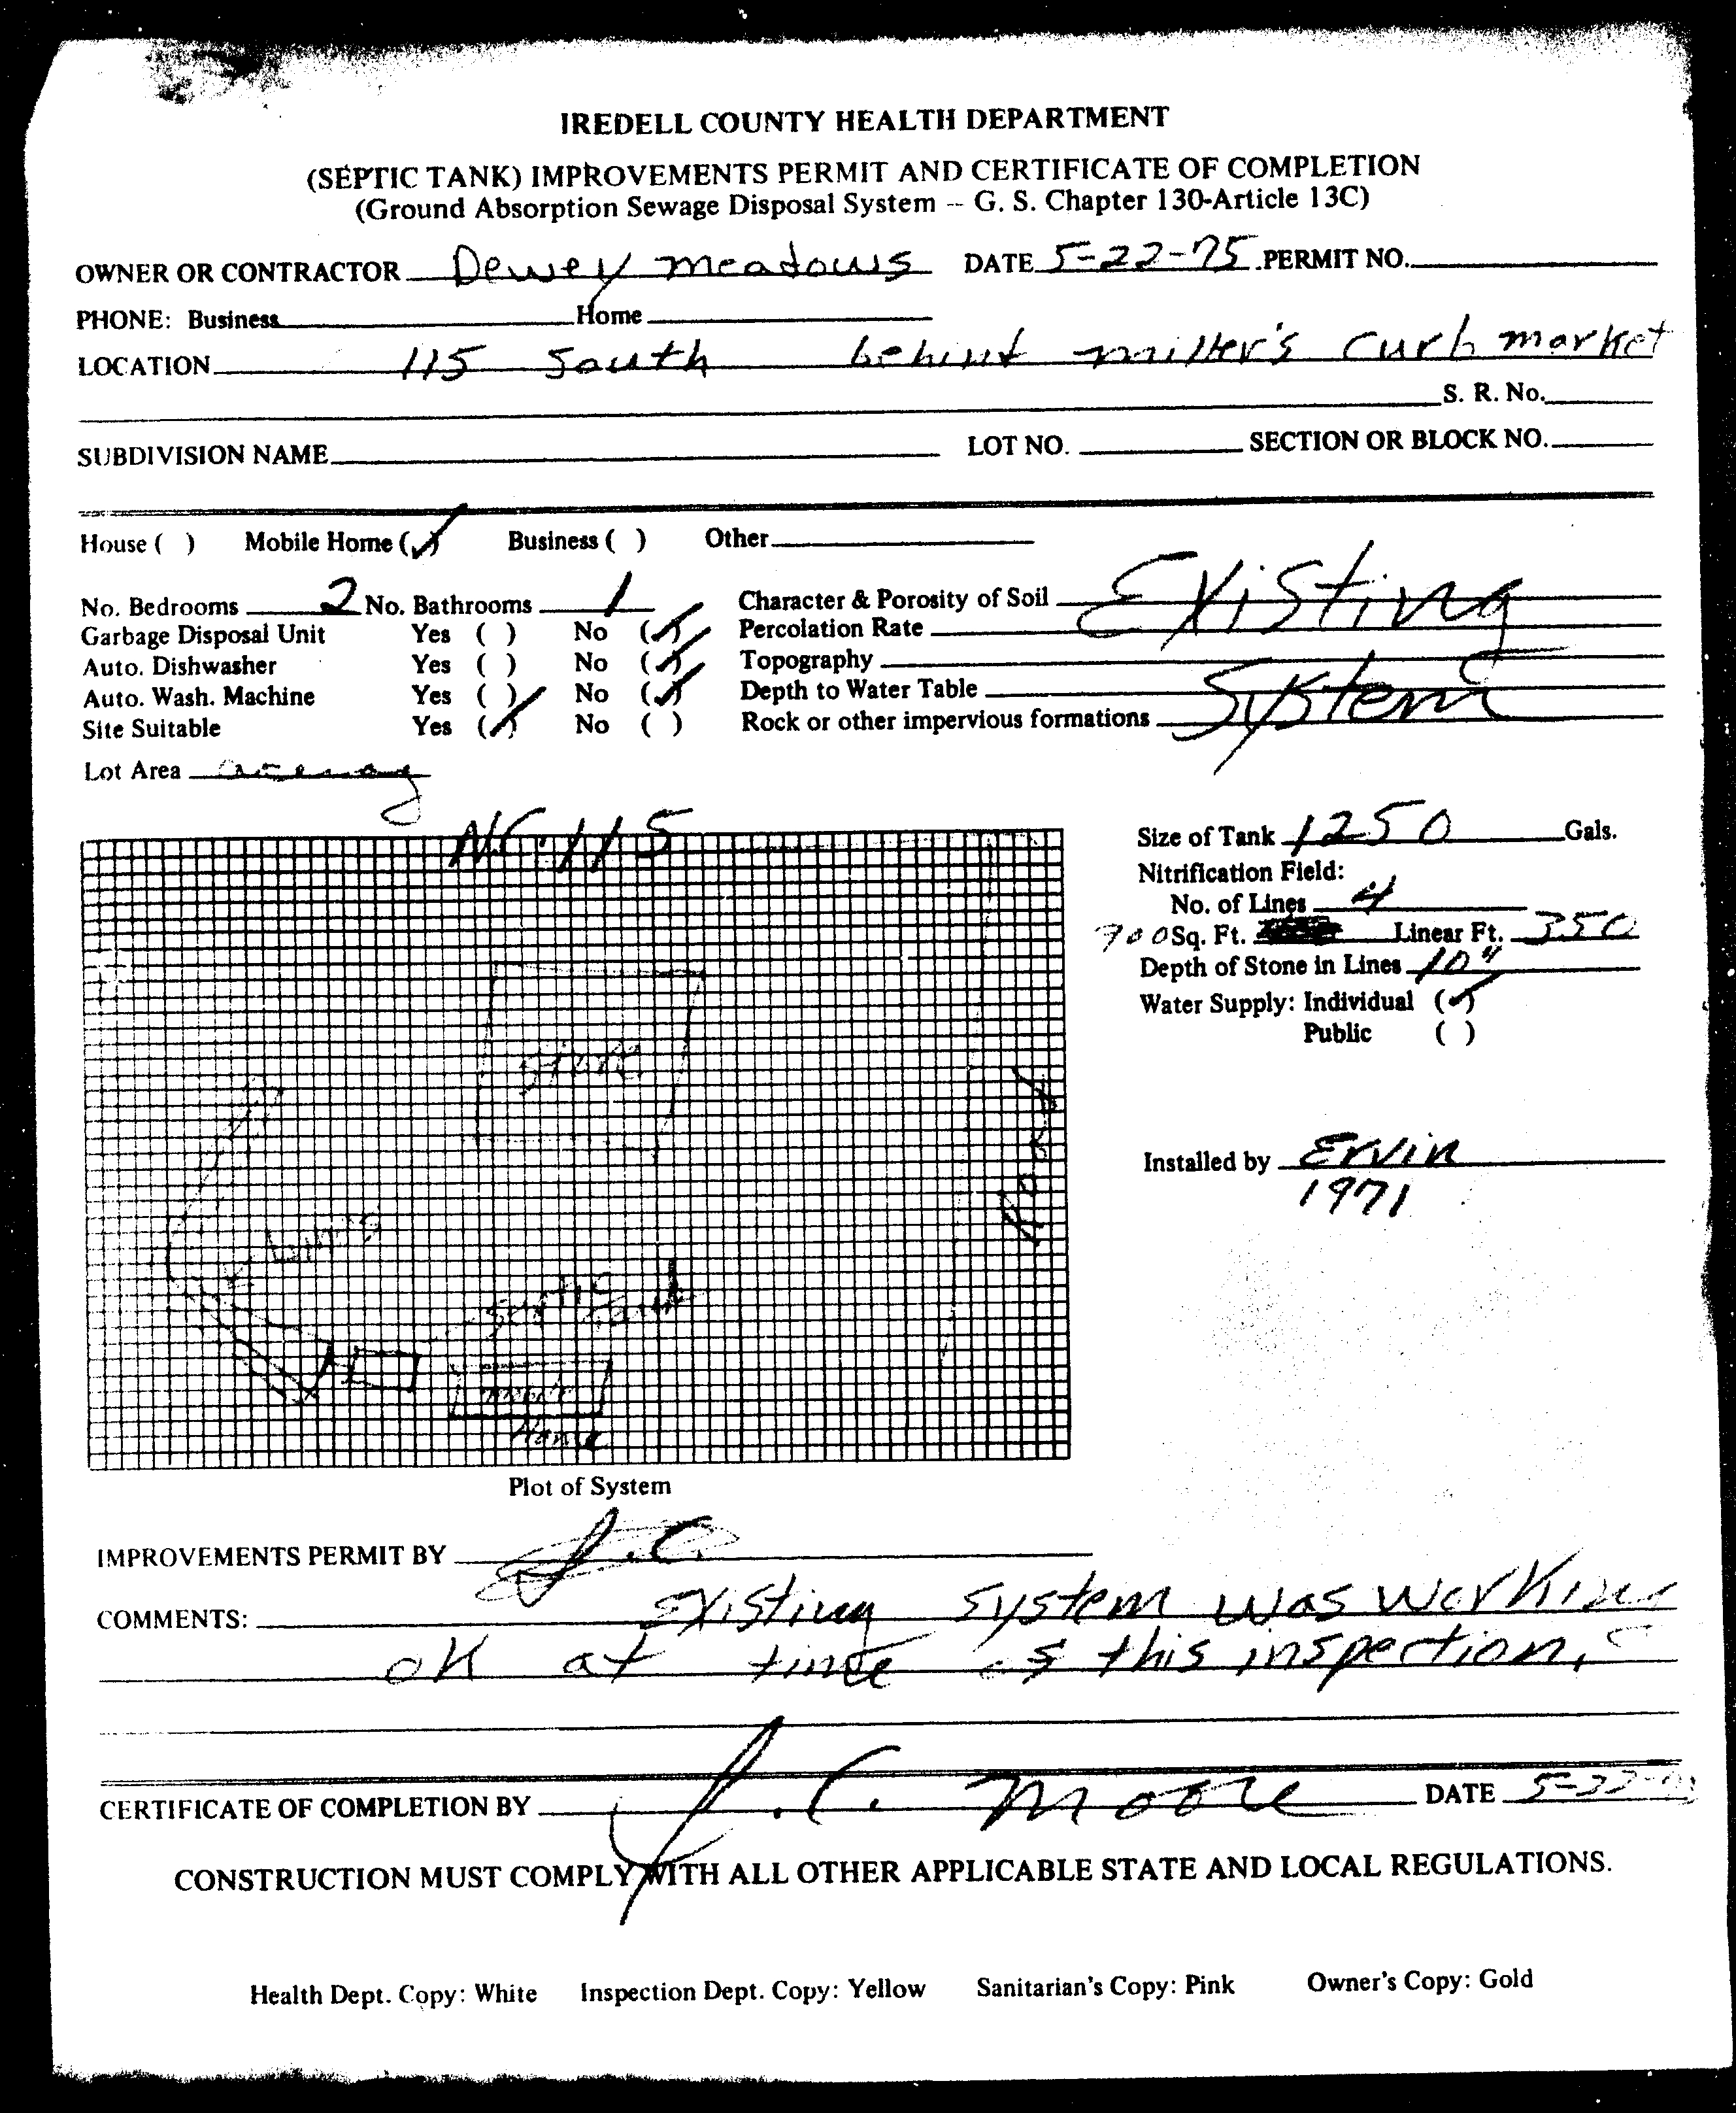 IREDELL COUNTY HEALTH DEPARTMENT
(SEPTIC TANK) IMPROVEMENTS PERMIT AND CERTIFICATE OF COMPLETION
(Ground Absorption Sewage Disposal System – G. S. Chapter 130-Article 13C)
OWNER OR CONTRACTOR Dewey Meadows DATE 5-22-75 PERMIT NO.
PHONE: Business Home
LOCATION 115 South behind miller's curb market
S. R. No.
SUBDIVISION NAME LOT NO. SECTION OR BLOCK NO.
House ( ) Mobile Home (✓) Business ( ) Other
No. Bedrooms 2 No. Bathrooms 1
Garbage Disposal Unit Yes ( ) No (✓)
Auto. Dishwasher Yes ( ) No (✓)
Auto. Wash. Machine Yes ( ) No (✓)
Site Suitable Yes (✓) No ( )
Character & Porosity of Soil Existing
Percolation Rate
Topography
Depth to Water Table System
Rock or other impervious formations
Lot Area
N.C. 115
Store
Road
Lines
Septic Tank
Mobile
Home
Plot of System
Size of Tank 1250 Gals.
Nitrification Field:
No. of Lines 4
900 Sq. Ft. Linear Ft. 350
Depth of Stone in Lines 10"
Water Supply: Individual (✓)
Public ( )
Installed by Ervin
1971
IMPROVEMENTS PERMIT BY J.C.
COMMENTS: Existing system was working
ok at time of this inspection.
CERTIFICATE OF COMPLETION BY J.C. Moore DATE 5-22-
CONSTRUCTION MUST COMPLY WITH ALL OTHER APPLICABLE STATE AND LOCAL REGULATIONS.
Health Dept. Copy: White Inspection Dept. Copy: Yellow Sanitarian's Copy: Pink Owner's Copy: Gold